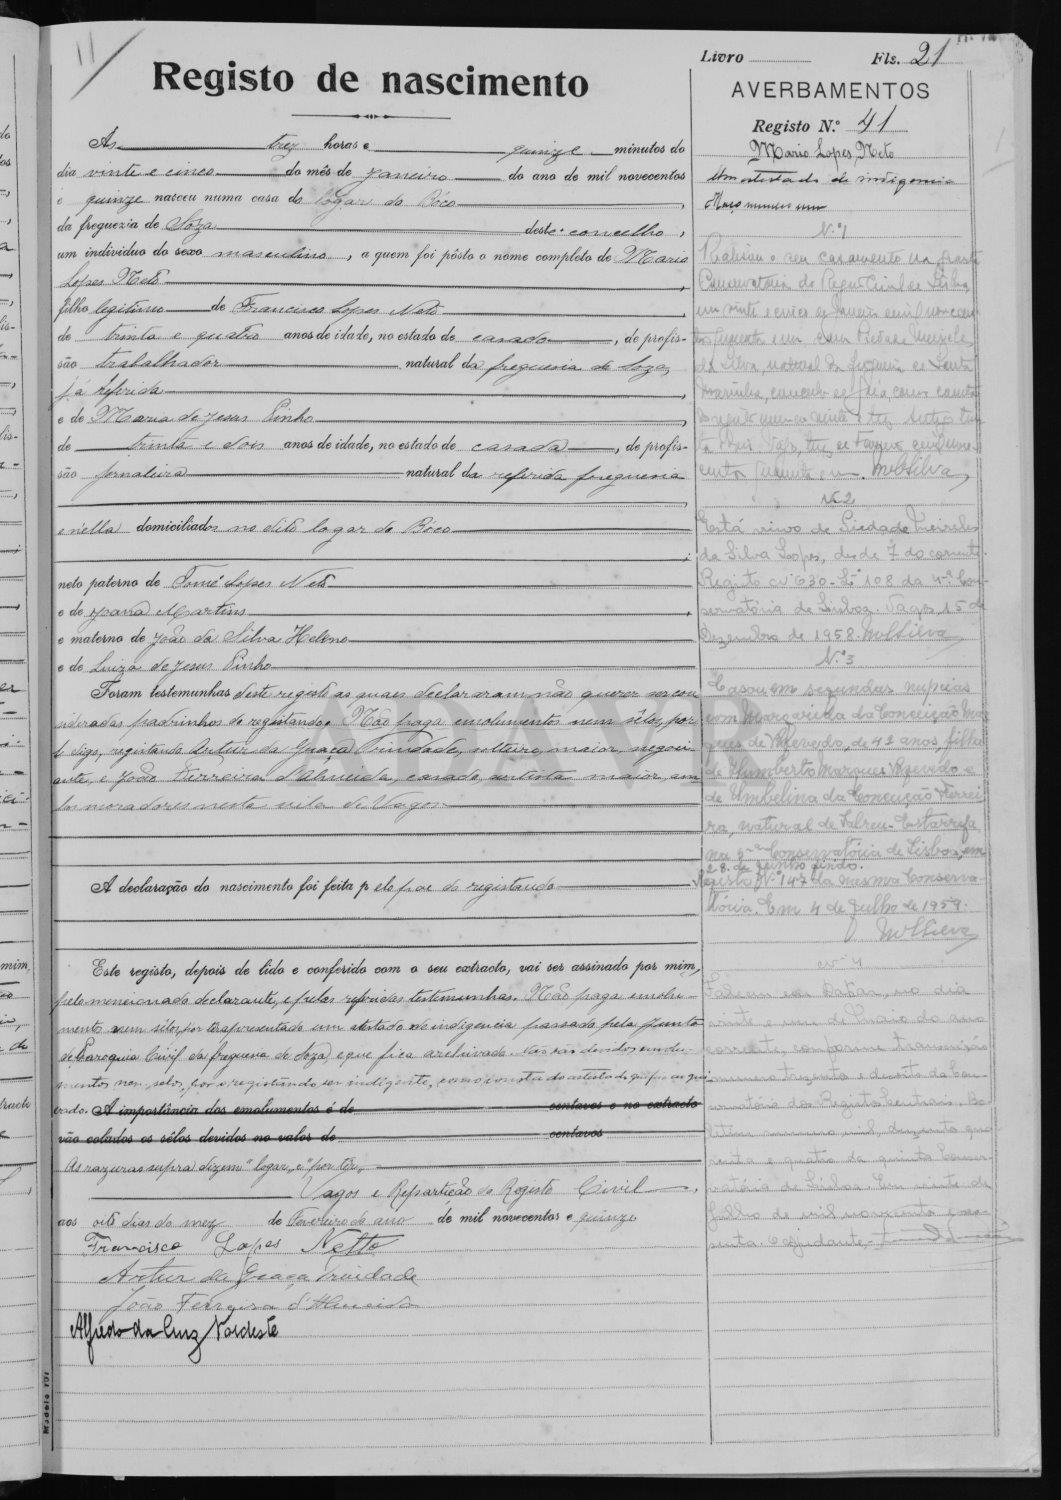 11
Registo de nascimento
Ás trez horas e quinze minutos do
dia vinte e cinco do mês de Janeiro do ano de mil novecentos
e quinze nasceu numa casa do logar do Bôco,
da freguezia de Soza deste concelho,
um individuo do sexo masculino, a quem foi pôsto o nome completo de Mario
Lopes Neto,
filho legitimo de Francisco Lopes Neto,
de trinta e quatro anos de idade, no estado de casado, de profis-
são trabalhador natural da freguesia de Soza,
já referida,
e de Maria de Jesus Pinho,
de trinta e dois anos de idade, no estado de casada, de profis-
são jornaleira natural da referida freguesia
e nella domiciliados no dito logar do Bôco
;
neto paterno de Tomé Lopes Neto
e de Joana Martins,
e materno de João da Silva Heleno
e de Luiza de Jesus Pinho
Foram testemunhas deste registo as quaes declararam não querer ser con
sideradas padrinhos do registando. Não paga emolumentos nem sêlos, por
digo, registando Artur da Graça Trindade, solteiro, maior, negoci-
ante, e João Ferreira d'Almeida, casado, artista maior, am
bos moradores nesta vila de Vagos
A declaração do nascimento foi feita pelo pae do registando
Este registo, depois de lido e conferido com o seu extracto, vai ser assinado por mim,
pelo mencionado declarante, e pelas referidas testemunhas. Não paga emolu-
mentos nem sêlos, por ter apresentado um atestado de indigencia passado pela Junta
de Paroquia Civil da freguesia de Soza, e que fica archivado. Não são devidos emolu-
mentos nem selos, por o registando ser indigente, como consta do atestado que fica arqui
vado. A importância dos emolumentos é de centavos e no extracto
vão colados os sêlos devidos no valor de centavos
As razuras supra dizem "logar", e "por ter",
Vagos e Repartição do Registo Civil,
aos oito dias do mez de Fevereiro do ano de mil novecentos e quinze
Francisco Lopes Netto
Artur da Graça Trindade
João Ferreira d'Almeida
Alfredo da Cruz Nordeste
Modelo 101
Livro Fls. 21
AVERBAMENTOS
Registo N.º 41
Mario Lopes Neto
Um atestado de indigencia
Maço numero um
N.º 1
Realisou o seu casamento na quarta
Conservatória do Registo Civil de Lisboa
em vinte e cinco de Janeiro de mil novecen
tos quarenta e um com Piedade Meireles
da Silva, natural da freguesia de Santa
Marinha, concelho de
MSilva
N.º 2
Está viuvo de Piedade Meireles
da Silva Lopes, desde 7 do corrente.
Registo nº 630 - Lº 108 da 4.ª Con-
servatória de Lisboa. Vagos, 15 de
Dezembro de 1958. MSilva
N.º 3
Casou em segundas nupcias
com Margarida da Conceição Mar
ques de Azevedo, de 42 anos, filha
de Humberto Marques Azevedo e
de Umbelina da Conceição Ferrei
ra, natural de Salreu-Estarreja
na Conservatória de Lisboa, em
28 de Junho findo.
Registo N.º 147 da mesma Conserva-
tória. Em 4 de Julho de 1959.
MSilva
nº 4
Faleceu em no dia
vinte e um de Maio do ano
corrente, conforme transcrição
numero trezentos e dezoito da Con-
servatória dos Registos Centrais. Bo-
letim numero mil, duzentos qua
renta e quatro da quinta Conser-
vatória de Lisboa. Em vinte de
Julho de mil novecentos e
. O ajudante,
ADAVR